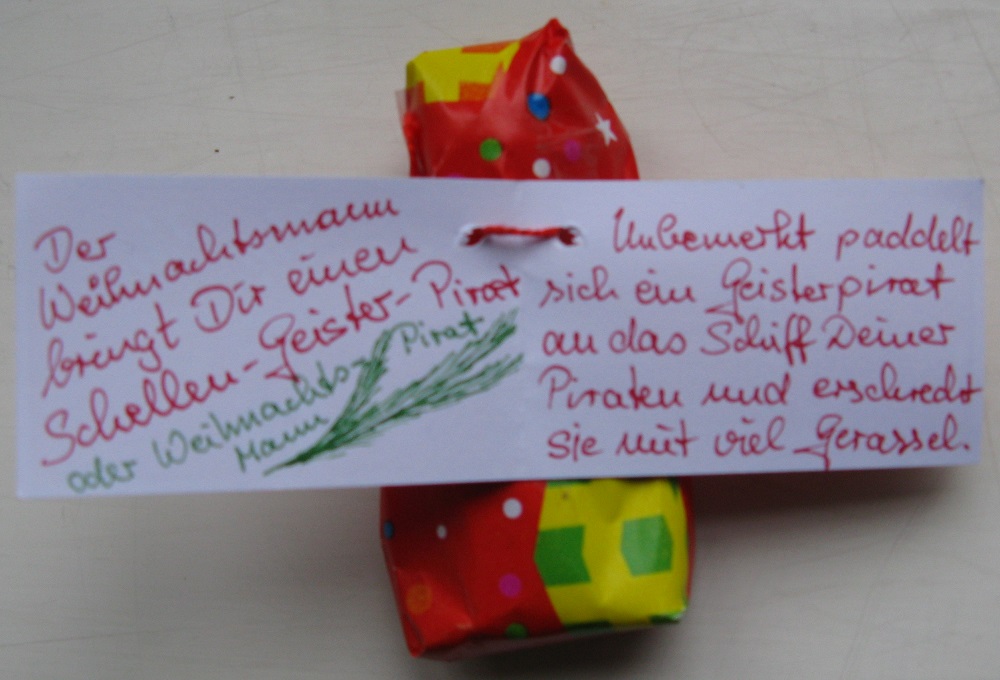 Der
Weihnachtsmann
bringt Dir einen
Schellen-Geister-Pirat
oder Weihnachts-Pirat
Mann
Unbemerkt paddelt
sich ein Geisterpirat
an das Schiff Deiner
Piraten und erschreckt
sie mit viel Gerassel.